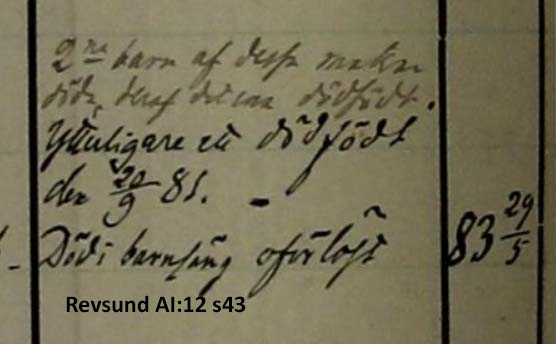 2ne barn af dessa makar
döda, deraf det ena dödfödt.
Ytterligare ett dödfödt
den 20/9 81. -
- Död i barnsäng oförlöst 83 29/5
Revsund AI:12 s43